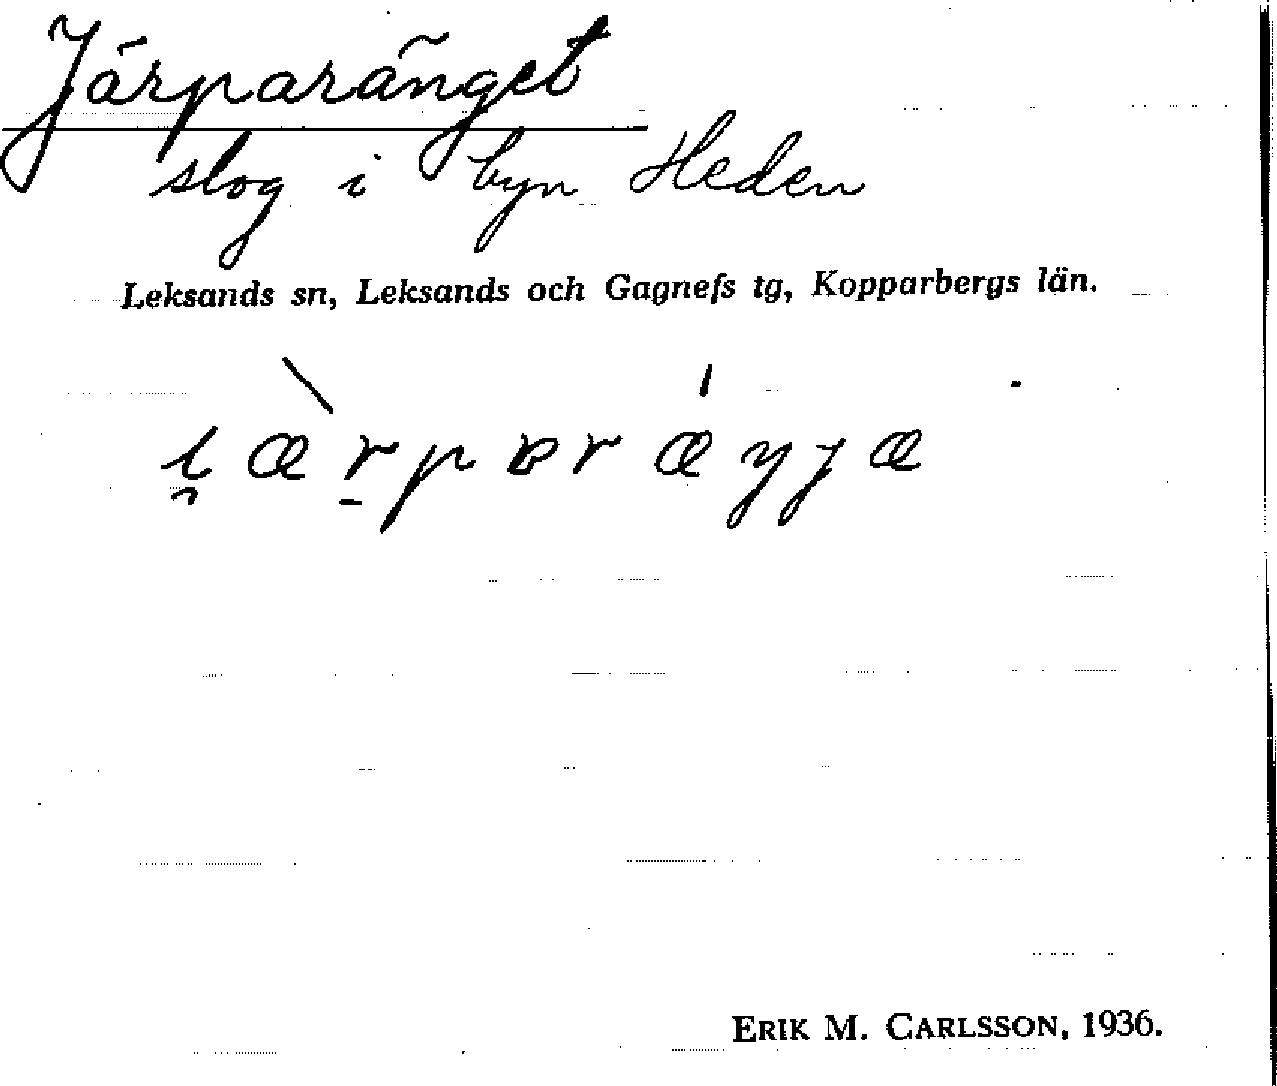 Järparänget
slog i byn Heden
Leksands sn, Leksands och Gagnefs tg, Kopparbergs län.
i̯æ̀r̠pɐrǽŋɟæ
ERIK M. CARLSSON, 1936.